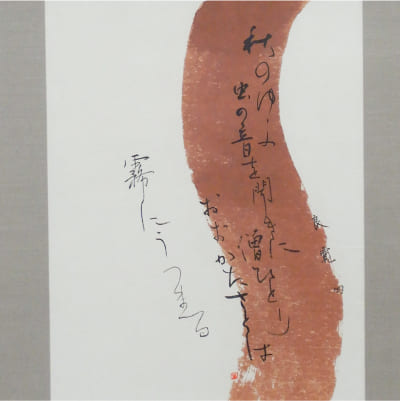 秋のゆふ
虫の音を聞きに
僧ひとり
おおかたさとは
霧にうつまる
良寛